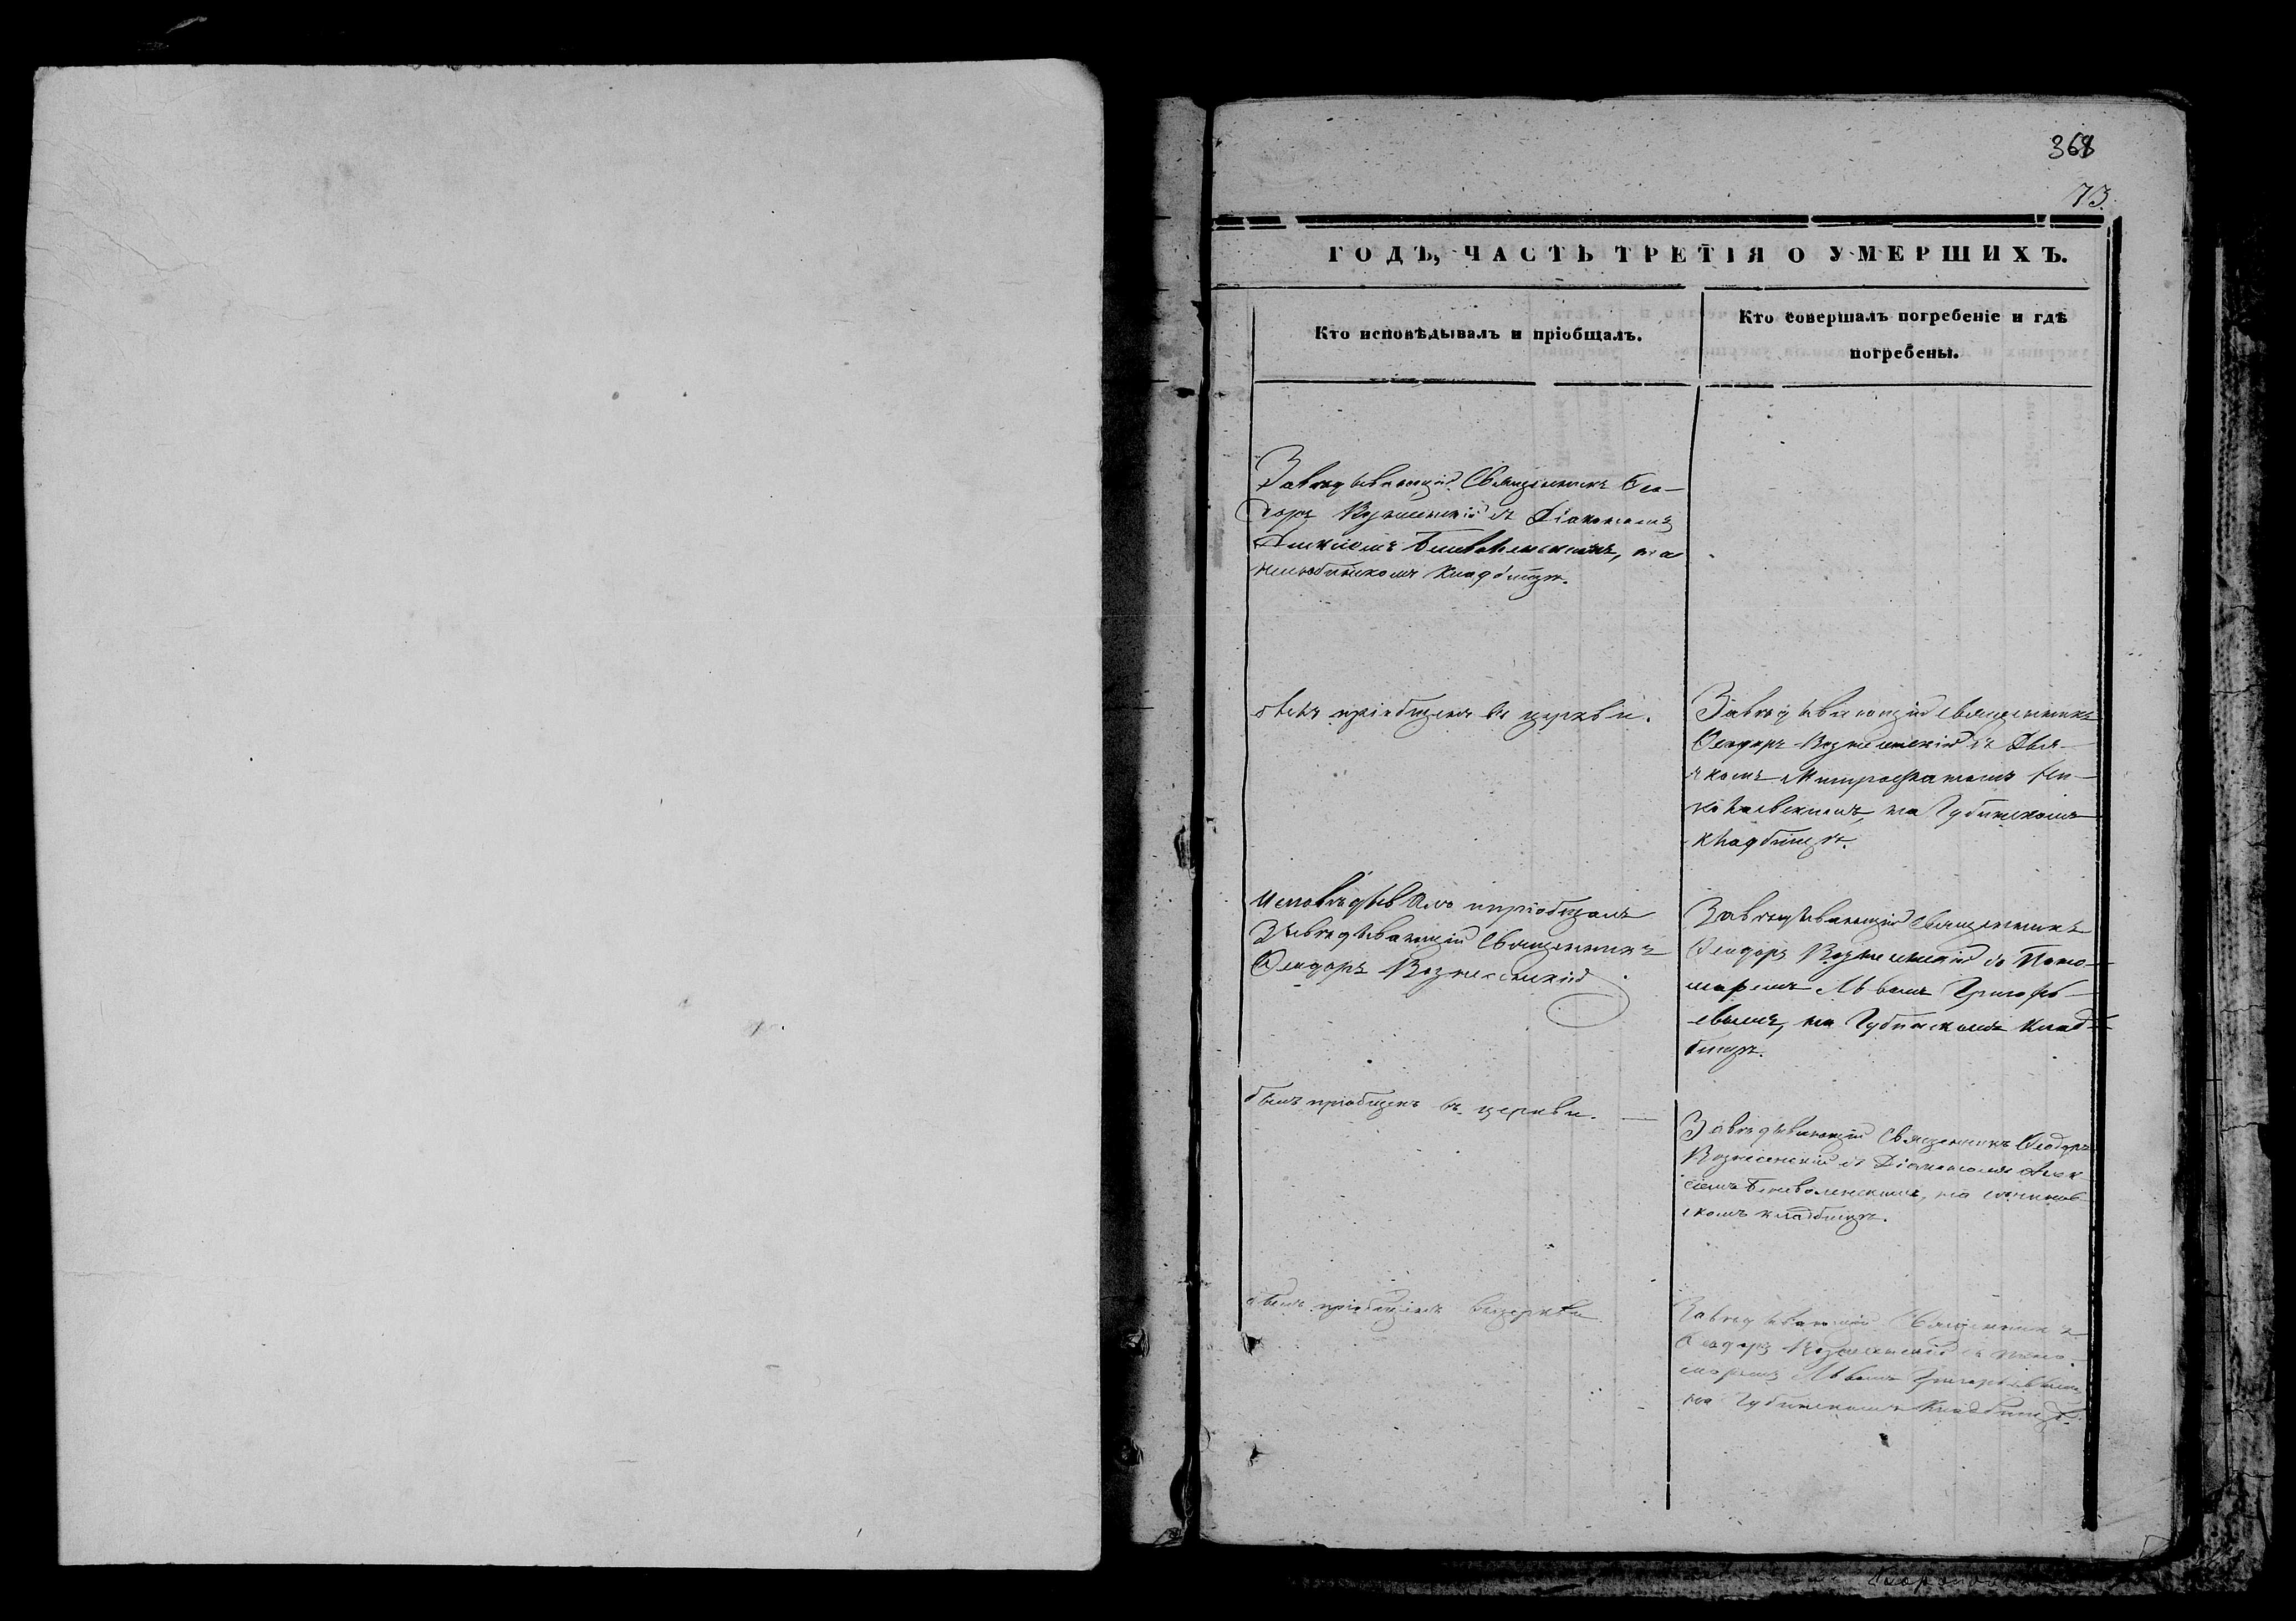 368
73.
ГОДЪ, ЧАСТЬ ТРЕТІЯ О УМЕРШИХЪ.
Кто исповѣдывалъ и пріобщалъ.
Кто совершалъ погребеніе и гдѣ
погребены.
Завѣдывающій Священникъ Ѳе-
доръ Вознесенскій съ Діакономъ
Алексіемъ Беневоленскимъ, на
кладбищѣ.
былъ пріобщенъ въ церкви.
Завѣдывающій священникъ
Ѳеодоръ Вознесенскій съ Дья-
чкомъ Митрофаномъ Ни-
колаевскимъ, на Губинскомъ
кладбищѣ.
Исповѣдывалъ и пріобщалъ
Завѣдывающій Священникъ
Ѳеодоръ Вознесенскій
Завѣдывающій священникъ
Ѳеодоръ Вознесенскій съ Поно-
маремъ Львомъ Григорь-
евымъ, на Губинскомъ клад-
бищѣ.
былъ пріобщенъ въ церкви.
Завѣдывающій Священникъ Ѳеодоръ
Вознесенскій съ Діакономъ Алек-
сіемъ Беневоленскимъ, на
скомъ кладбищѣ.
былъ пріобщенъ въ церкви.
Завѣдывающій Священникъ
Ѳеодоръ Вознесенскій съ Поно-
маремъ Львомъ Григорьевымъ,
на Губинскомъ Кладбищѣ.